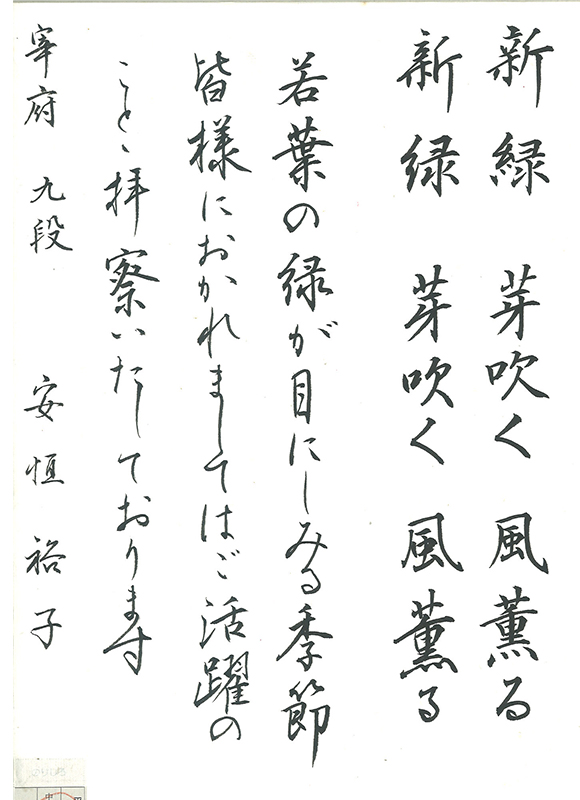 新緑 芽吹く 風薫る
新緑 芽吹く 風薫る
若葉の緑が目にしみる季節
皆様におかれましてはご活躍の
ことゝ拝察いたしております
宰府 九段 安恒裕子